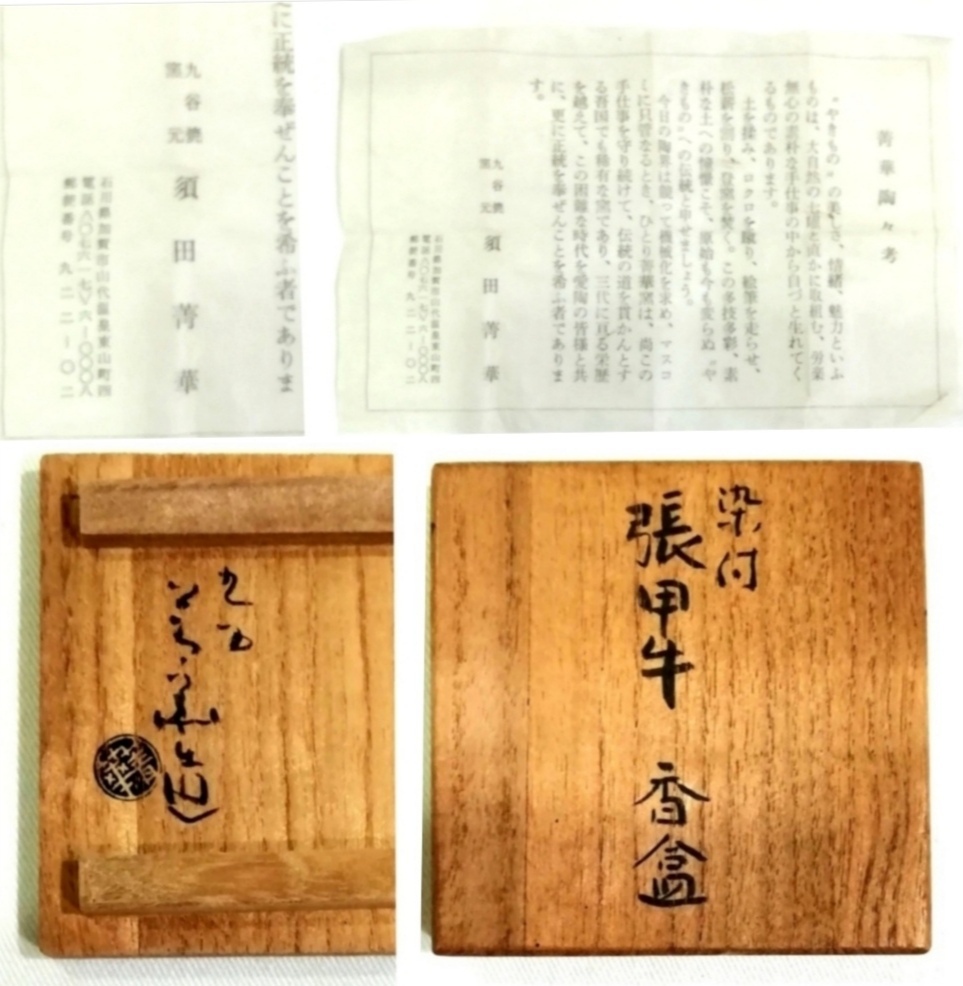 に正統を奉ぜんことを希ふ者でありま
九谷焼
窯元 須田菁華
石川県加賀市山代温泉東山町四
電話(〇七六一七)六―〇〇〇八
郵便番号 九二二―〇二
菁華陶々考
“やきもの”の美しさ、情緒、魅力といふ
ものは、大自然の土壌と直かに取組む、労楽
無心の素朴な手仕事の中から自づと生れてく
るものであります。
土を揉み、ロクロを蹴り、絵筆を走らせ、
松薪を割り、登窯を焚く。この多技多彩、素
朴な土への憧憬こそ、原始も今も変らぬ“や
きもの”への伝統と申せましょう。
今日の陶界は競って機械化を求め、マスコ
ミに只管なるとき、ひとり菁華窯は、尚この
手仕事を守り続けて、伝統の道を貫かんとす
る吾国でも稀有な窯であり、三代に亘る栄歴
を越えて、この困難な時代を愛陶の皆様と共
に、更に正統を奉ぜんことを希ふ者でありま
す。
九谷焼
窯元 須田菁華
石川県加賀市山代温泉東山町四
電話(〇七六一七)六―〇〇〇八
郵便番号 九二二―〇二
九谷
菁華造
染付
張甲牛 香盒